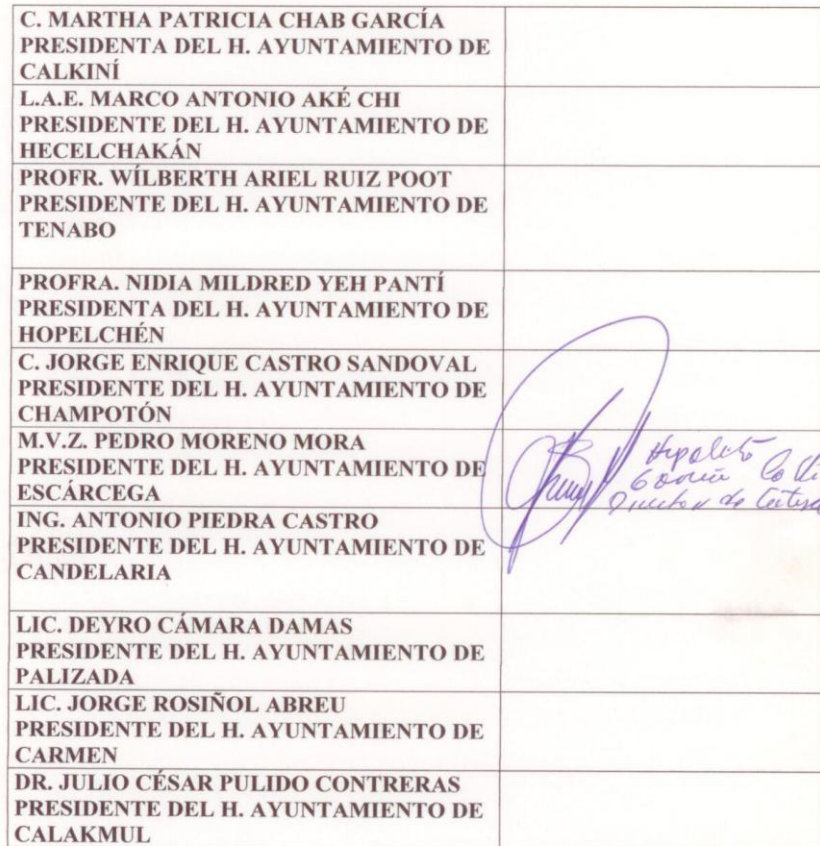 C. MARTHA PATRICIA CHAB GARCÍA
PRESIDENTA DEL H. AYUNTAMIENTO DE
CALKINÍ
L.A.E. MARCO ANTONIO AKÉ CHI
PRESIDENTE DEL H. AYUNTAMIENTO DE
HECELCHAKÁN
PROFR. WÍLBERTH ARIEL RUIZ POOT
PRESIDENTE DEL H. AYUNTAMIENTO DE
TENABO
PROFRA. NIDIA MILDRED YEH PANTÍ
PRESIDENTA DEL H. AYUNTAMIENTO DE
HOPELCHÉN
C. JORGE ENRIQUE CASTRO SANDOVAL
PRESIDENTE DEL H. AYUNTAMIENTO DE
CHAMPOTÓN
M.V.Z. PEDRO MORENO MORA
PRESIDENTE DEL H. AYUNTAMIENTO DE
ESCÁRCEGA
Hipolito
de
ING. ANTONIO PIEDRA CASTRO
PRESIDENTE DEL H. AYUNTAMIENTO DE
CANDELARIA
LIC. DEYRO CÁMARA DAMAS
PRESIDENTE DEL H. AYUNTAMIENTO DE
PALIZADA
LIC. JORGE ROSIÑOL ABREU
PRESIDENTE DEL H. AYUNTAMIENTO DE
CARMEN
DR. JULIO CÉSAR PULIDO CONTRERAS
PRESIDENTE DEL H. AYUNTAMIENTO DE
CALAKMUL